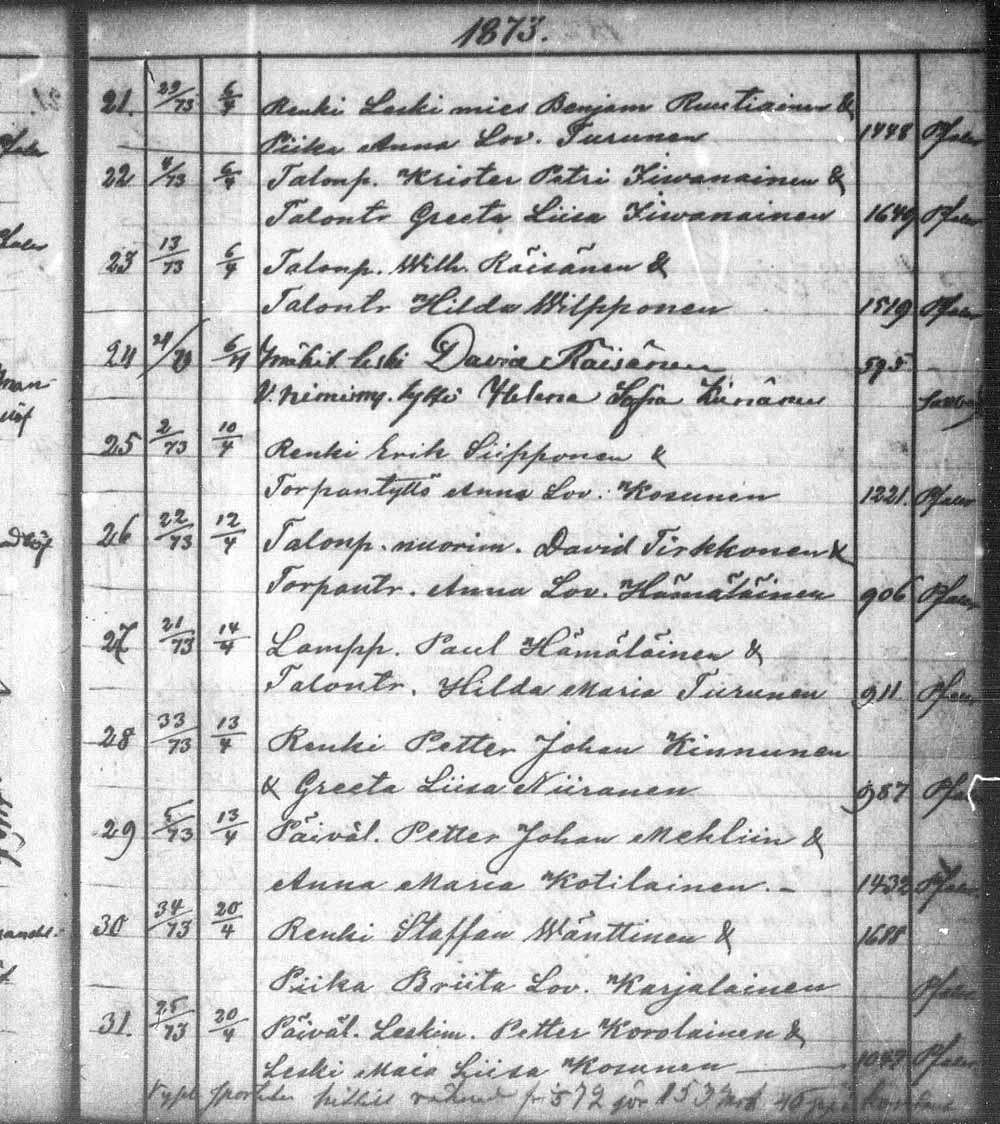 1873.
21. 29/73 6/4 Renki Leskimies Benjam Ruutiainen &
Piika Anna Lov. Turunen 1448 Pfaler
22 4/73 6/4 Talonp. Krister Petri Kiwanainen &
Talontr Greeta Liisa Kiwanainen 1649 Pfaler
23 13/73 6/4 Talonp. Wilh. Räisänen &
Talontr Hilda Wilpponen 1519 Pfaler
24 6/4 leski David Räisänen 595
Helena Sofia
25 2/73 10/4 Renki Erik Siipponen &
Torpantyttö Anna Lov. Kosunen 1221 Pfaler
26 22/73 12/4 Talonp. nuorim. David Tirkkonen &
Torpantr. Anna Lov. Hämäläinen 906 Pfaler
27 21/73 14/4 Lampp. Paul Hämäläinen &
Talontr. Hilda Maria Turunen 911 Pfaler
28 33/73 13/4 Renki Petter Johan Kinnunen
& Greeta Liisa Niiranen 987 Pfaler
29 5/73 13/4 Päiväl. Petter Johan Mehliin &
Anna Maria Kotilainen. – 1432 Pfaler
30 34/73 20/4 Renki Staffan Wänttinen & 1688
Piika Briita Lov. Karjalainen Pfaler
31. 25/73 20/4 Päiväl. Leskim. Petter Korolainen &
Leski Maia Liisa Kosunen 1047 Pfaler
572 gör 153